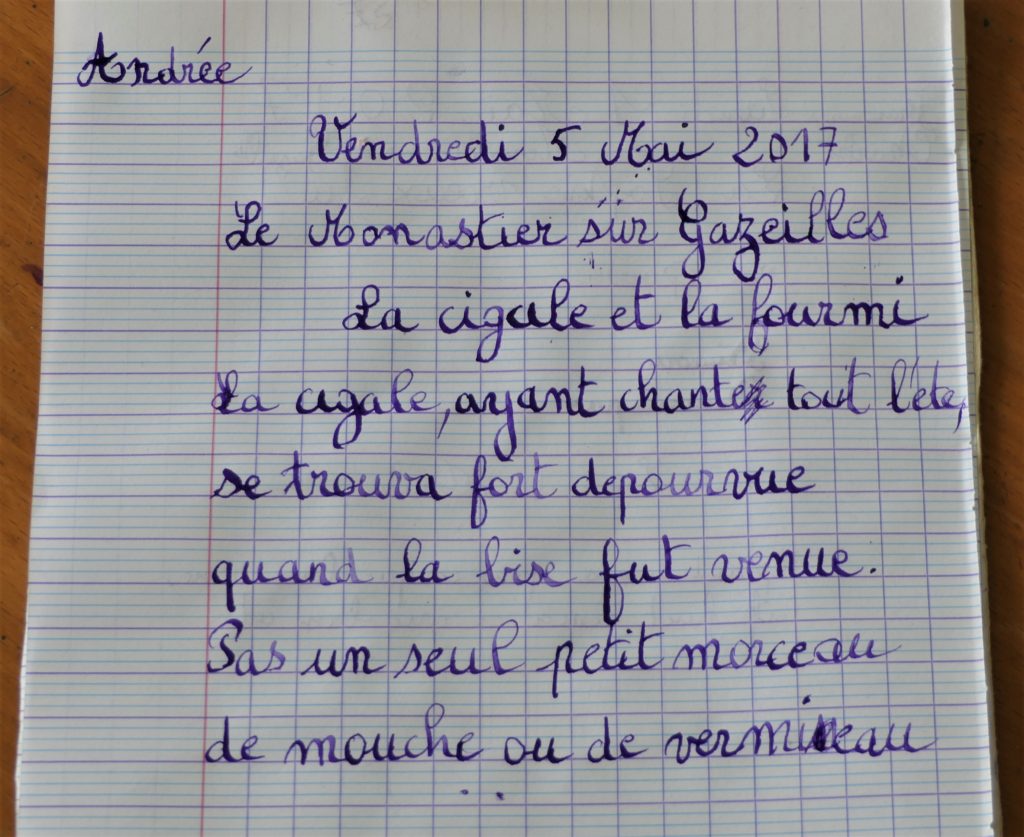 Andrée
Vendredi 5 Mai 2017
Le Monastier sur Gazeilles
La cigale et la fourmi
La cigale, ayant chante tout l'été,
se trouva fort depourvue
quand la bise fut venue.
Pas un seul petit morceau
de mouche ou de vermineau